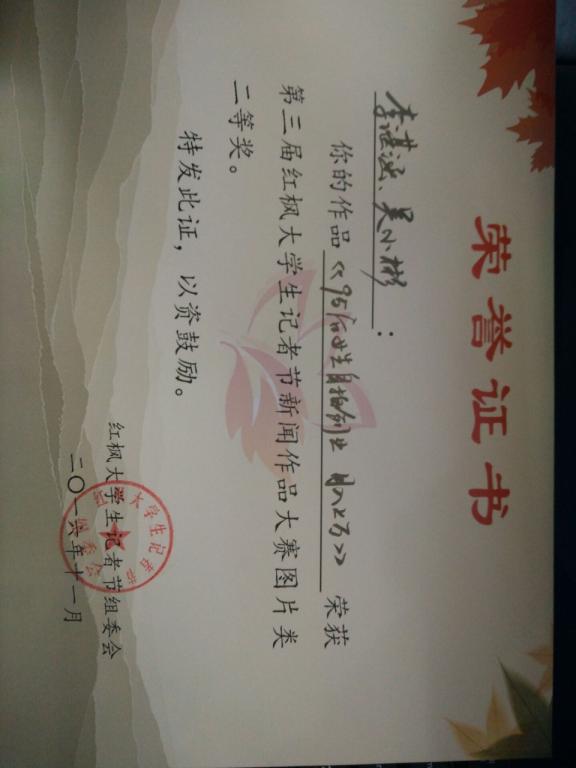 荣誉证书
李湛涵、吴小彬：
你的作品《95后女生自拍创业 月入上万》荣获
第三届红枫大学生记者节新闻作品大赛图片类
二等奖。
特发此证，以资鼓励。
红枫大学生记者节组委会
二〇一六年十一月